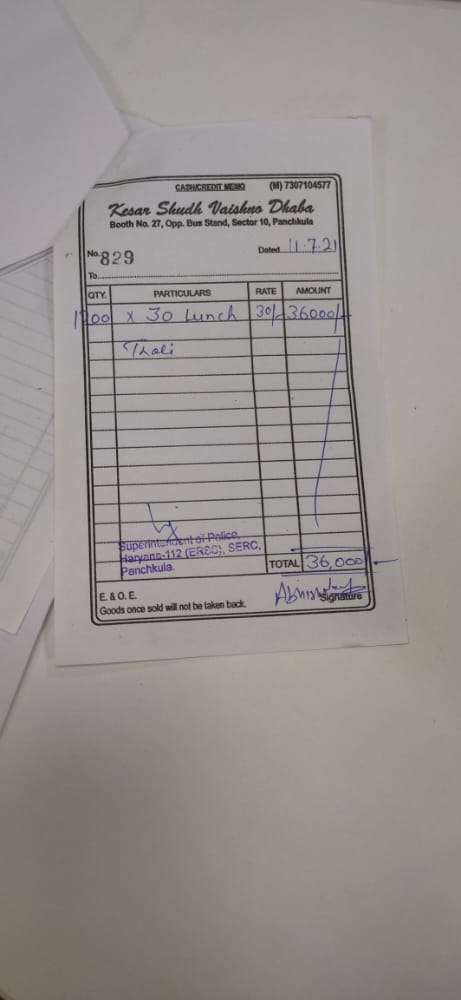 CASH/CREDIT MEMO (M) 7307104577
Kesar Shudh Vaishno Dhaba
Booth No. 27, Opp. Bus Stand, Sector 10, Panchkula
No. 829 Dated 11.7.21
To
QTY. PARTICULARS RATE AMOUNT
1200 x 30 Lunch 30/- 36000/-
Thali
Superintendent of Police,
Haryana-112 (ERSC), SERC,
Panchkula.
TOTAL 36,000
E. & O. E.
Signature
Goods once sold will not be taken back.